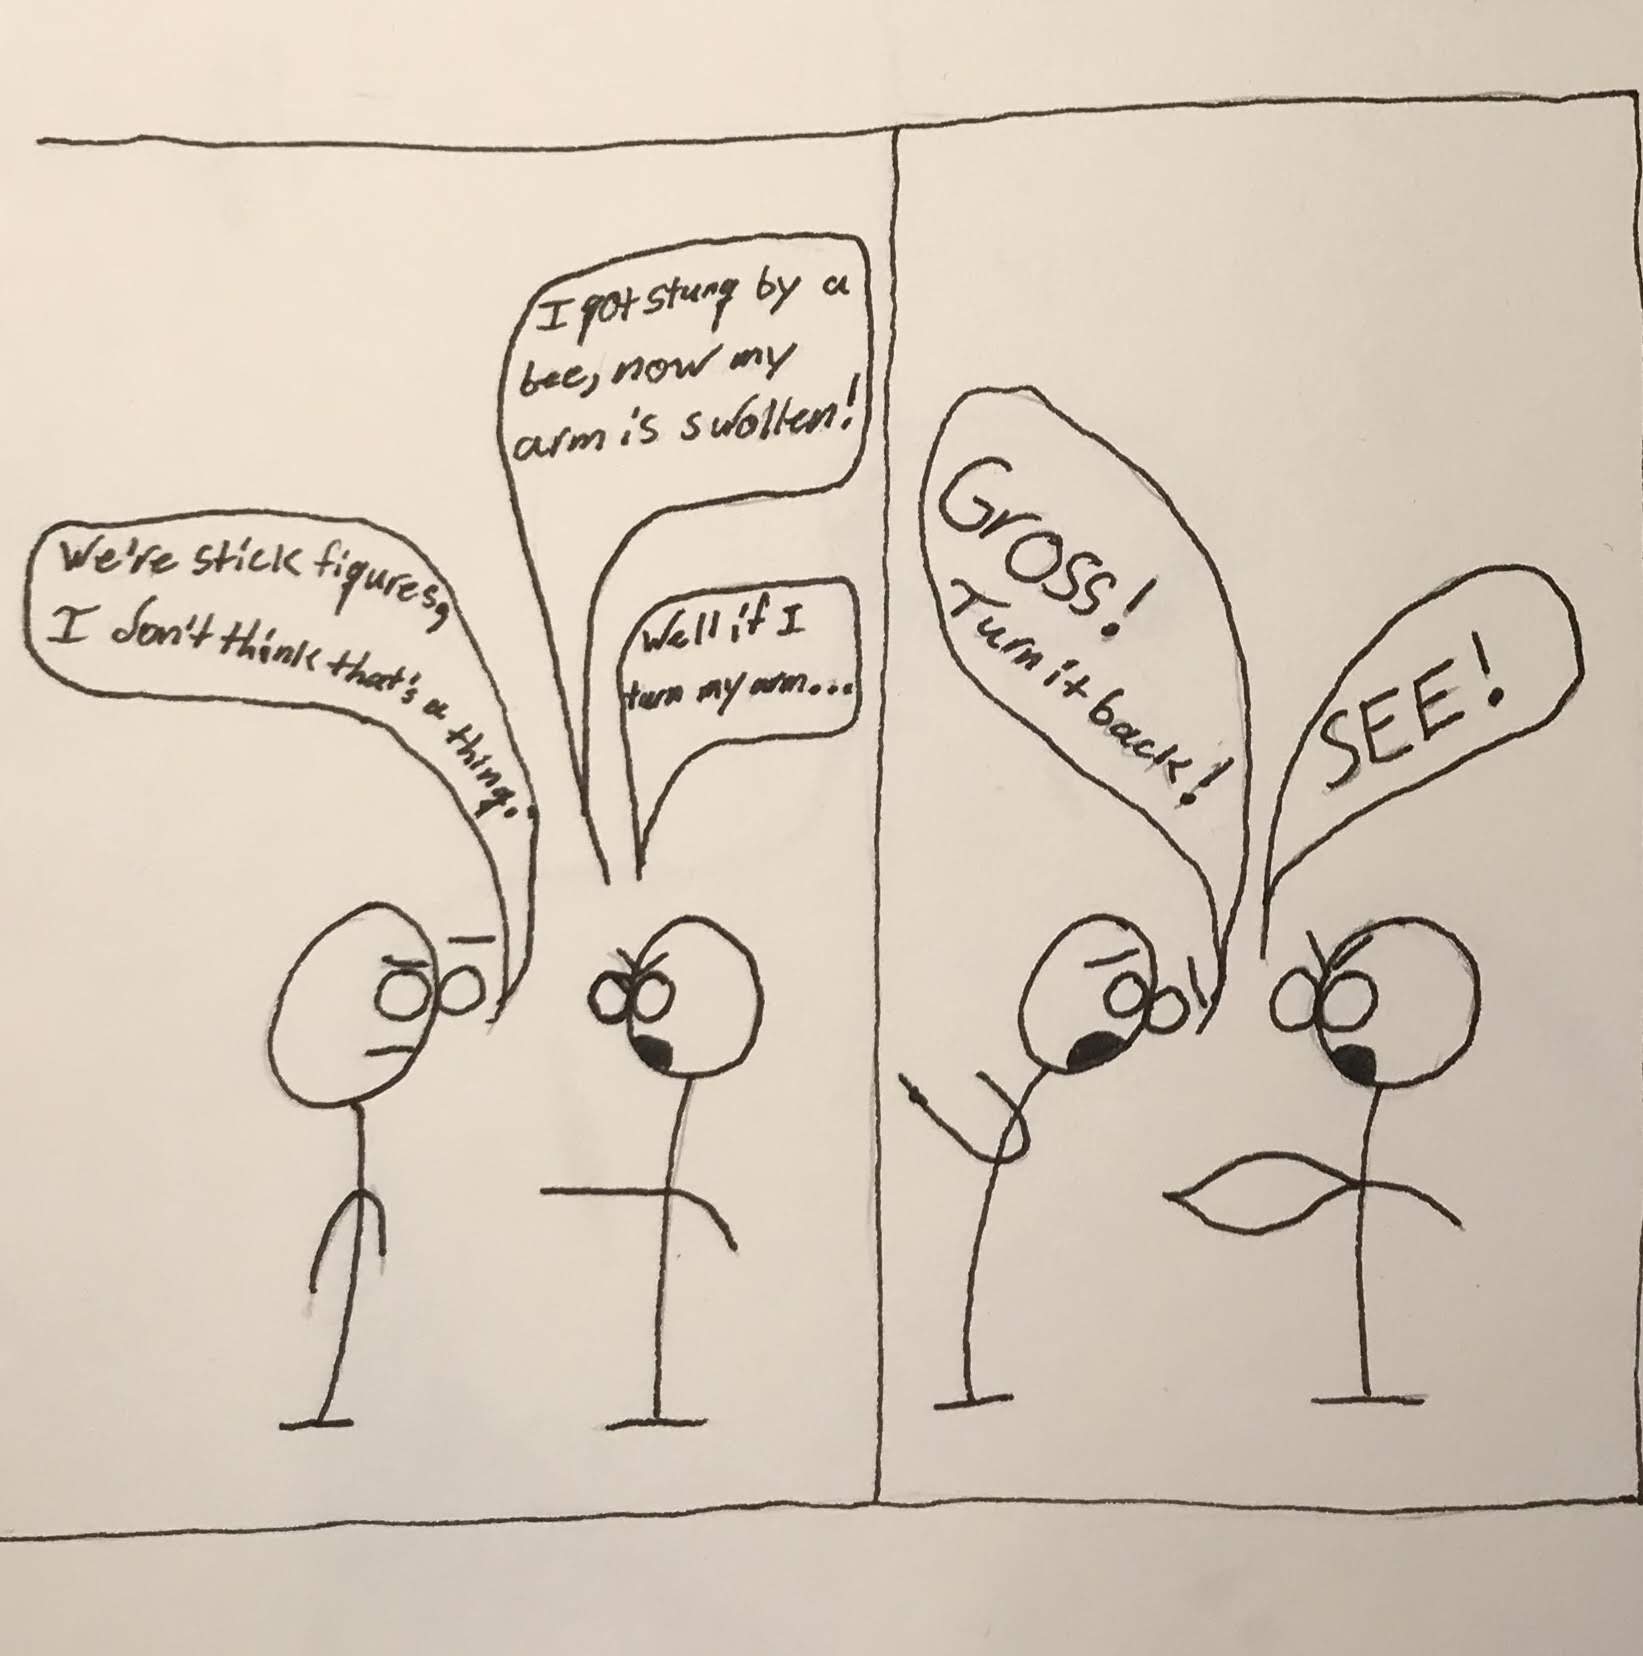 I got stung by a
bee, now my
arm is swollen!
We're stick figures,
I don't think that's a thing..
Well if I
turn my arm...
Gross!
Turn it back!
SEE!